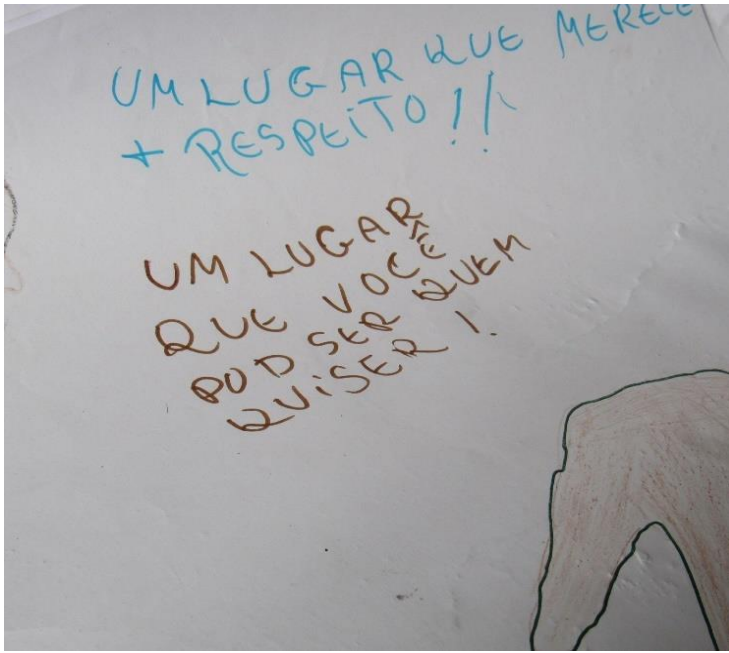 UM LUGAR QUE MERECE
+ RESPEITO!!
UM LUGAR
QUE VOCÊ
POD SER QUEM
QUISER!